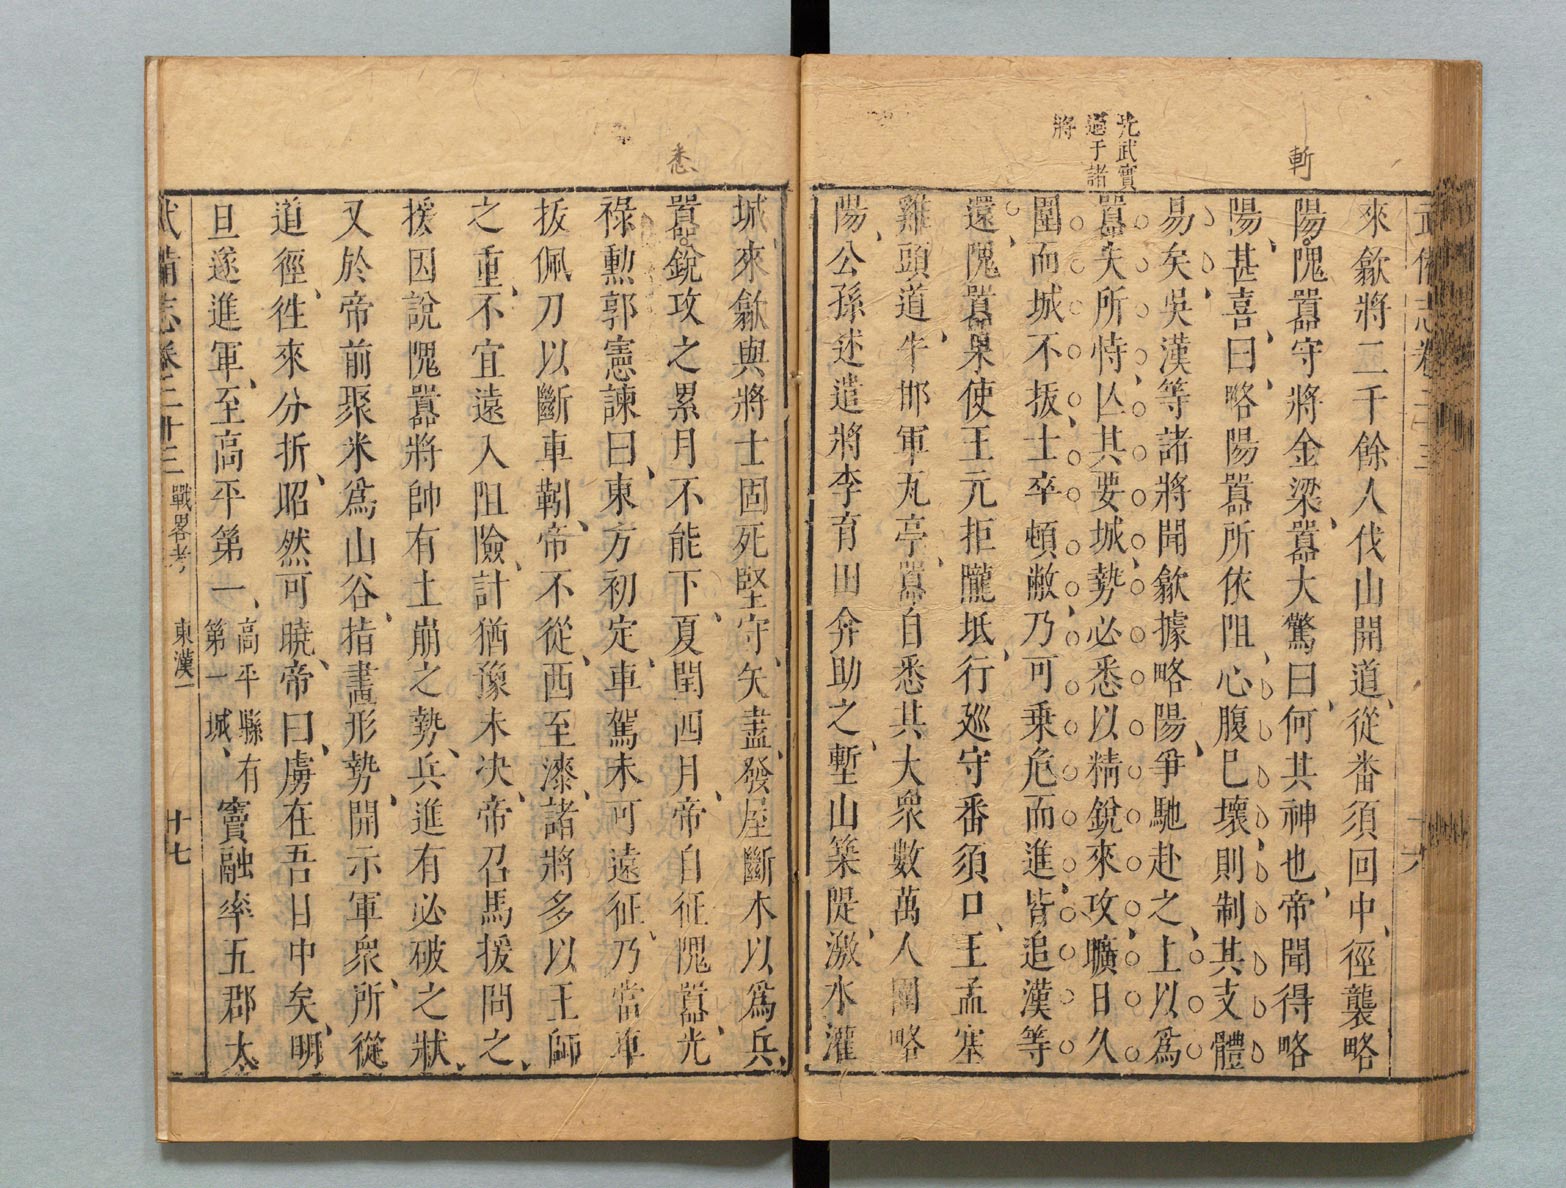 光武實
過于諸
將
斬
來歙將二千餘人伐山開道從番須回中徑襲略
陽隗囂守將金梁囂大驚曰何其神也帝聞得略
陽甚喜曰略陽囂所依阻心腹已壞則制其支體
易矣吳漢等諸將聞歙據略陽爭馳赴之上以爲
囂失所恃亾其要城勢必悉以精銳來攻曠日久
圍而城不拔士卒頓敝乃可乗危而進皆追漢等
還隗囂果使王元拒隴坻行廵守番須口王孟塞
雞頭道牛邯軍瓦亭囂自悉其大衆數萬人圍略
陽公孫述遣將李育田弇助之塹山築隄激水灌
悉
城來歙與將士固死堅守矢盡發屋斷木以爲兵
囂銳攻之累月不能下夏閏四月帝自征隗囂光
祿勲郭憲諫曰東方初定車駕未可遠征乃當車
拔佩刀以斷車靷帝不從西至漆諸將多以王師
之重不宜遠入阻險計猶豫未决帝召馬援問之
援因說隗囂將帥有土崩之勢兵進有必破之狀
又於帝前聚米爲山谷指畫形勢開示軍衆所從
道徑徃來分折昭然可曉帝曰虜在吾目中矣明
旦遂進軍至高平第一高平縣有第一城竇融率五郡太
武備志卷三十三 戰畧考 東漢一 十七